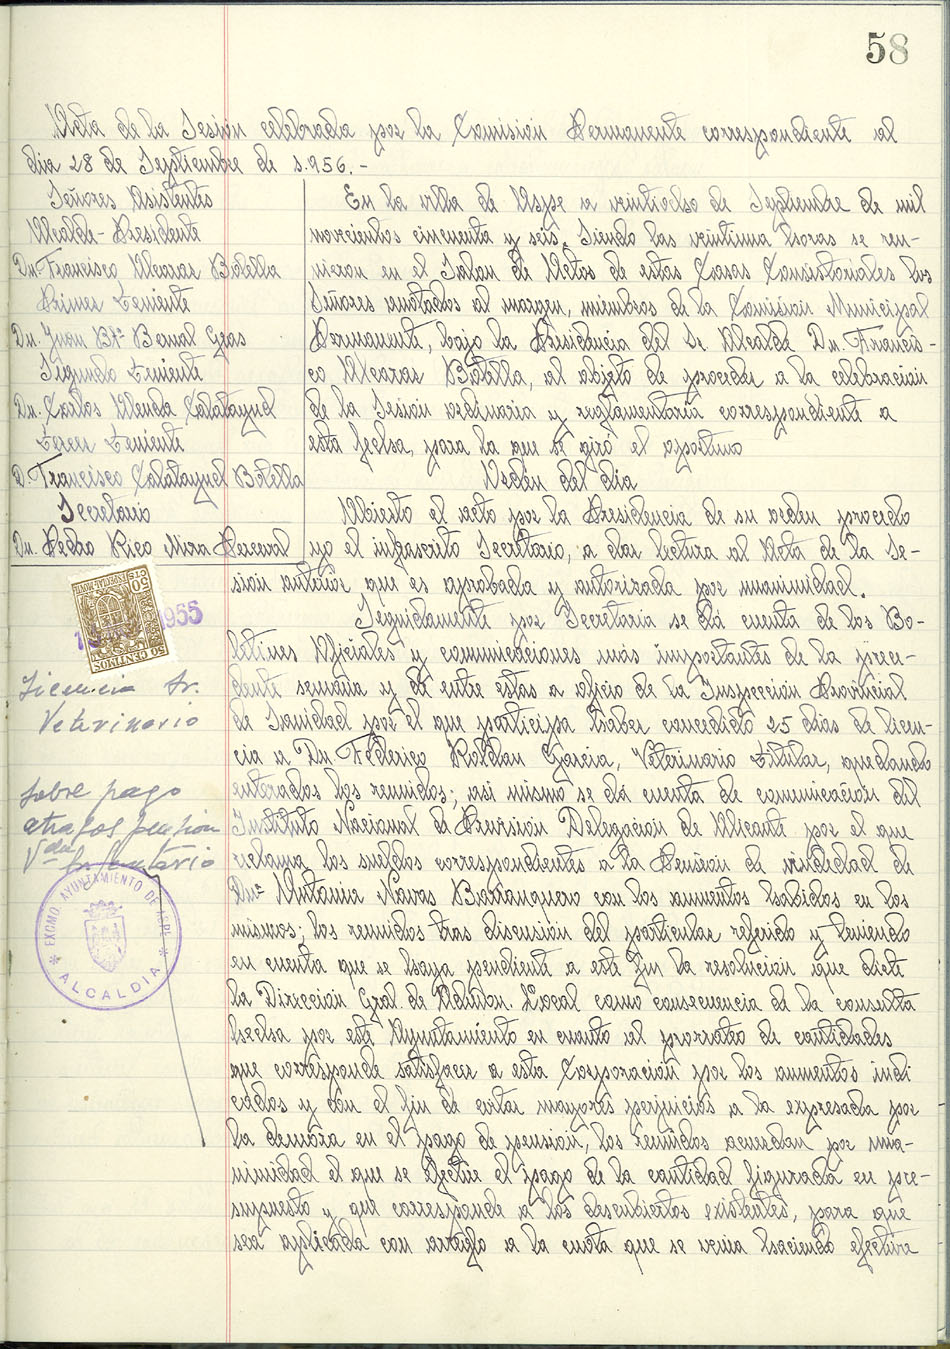 58
Acta de la Sesión celebrada por la Comisión Permanente correspondiente al
dia 28 de Septiembre de 1.956.-
Señores Asistentes
Alcalde-Presidente
Dn. Francisco Alcaraz Botella
Primer Teniente
Dn. Juan Btª Bernal Egas
Segundo Teniente
Dn. Carlos Alenda Calatayud
Tercer Teniente
D. Francisco Calatayud Botella
Secretario
Dn. Pedro Rico Mira-Perceval
En la villa de Aspe a vintiocho de Septiembre de mil
novecientos cincuenta y seis. Siendo las vintiuna horas se reu-
nieron en el Salon de Actos de estas Casas Consistoriales los
Señores anotados al margen, miembros de la Comisión Municipal
Permanente, bajo la Presidencia del Sr Alcalde Dn. Francis-
co Alcaraz Botella, al objeto de proceder a la celebracion
de la Sesion ordinaria y reglamentaria correspondiente a
esta fecha, para la que se giró el oportuno
Orden del dia
Abierto el acto por la Presidencia de su orden procedo
yo el infrascrito Secretario, a dar lectura al Acta de la Se-
sion anterior que es aprobada y autorizada por unanimidad.
Seguidamente por Secretaria se dá cuenta de los Bo-
letines Oficiales y comunicaciones más importantes de la prece-
dente semana y de entre estas a oficio de la Inspección Provincial
de Sanidad por el que participa haber concedido 25 dias de licen-
cia a Dn. Federico Roldan Garcia, Veterinario Titular, quedando
enterados los reunidos; asi mismo se dá cuenta de comunicación del
Instituto Nacional de Prevision Delegacion de Alicante por el que
reclama los sueldos correspondientes a la Pensión de viudedad de
Dnª Antonia Navas Barranquero con los aumentos habidos en los
mismos; los reunidos tras discusión del particular referido y teniendo
en cuenta que se haya pendiente a este fin la resolucion que dicte
la Direccion Gral. de Admon. Local como consecuencia de la consulta
hecha por este Ayuntamiento en cuanto al prorrateo de cantidades
que corresponde satisfacer a esta Corporación por los aumentos indi
cados y con el fin de evitar mayores perjuicios a la expresada por
la demora en el pago de pensión, los reunidos acuerdan por una-
nimidad el que se efectúe el pago de la cantidad figurada en pre-
supuesto y que corresponde a los descubiertos existentes, para que
sea aplicada con arreglo a la cuota que se venia haciendo efectiva
50 CENTIMOS
ESPECIAL MOVIL
50 CTS
1955
Licencia Sr.
Veterinario
Sobre pago
atrasos pension
Vda
EXCMO. AYUNTAMIENTO DE ASPE
* ALCALDIA *